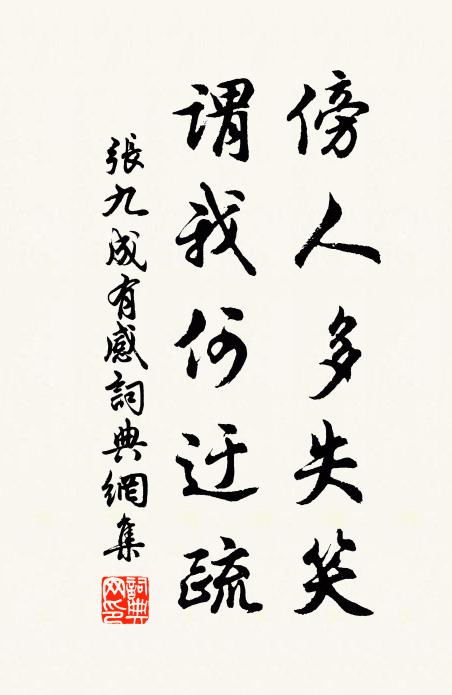 傍人多失笑
謂我何迂疏
張九成有感詞典網集
詞典網印